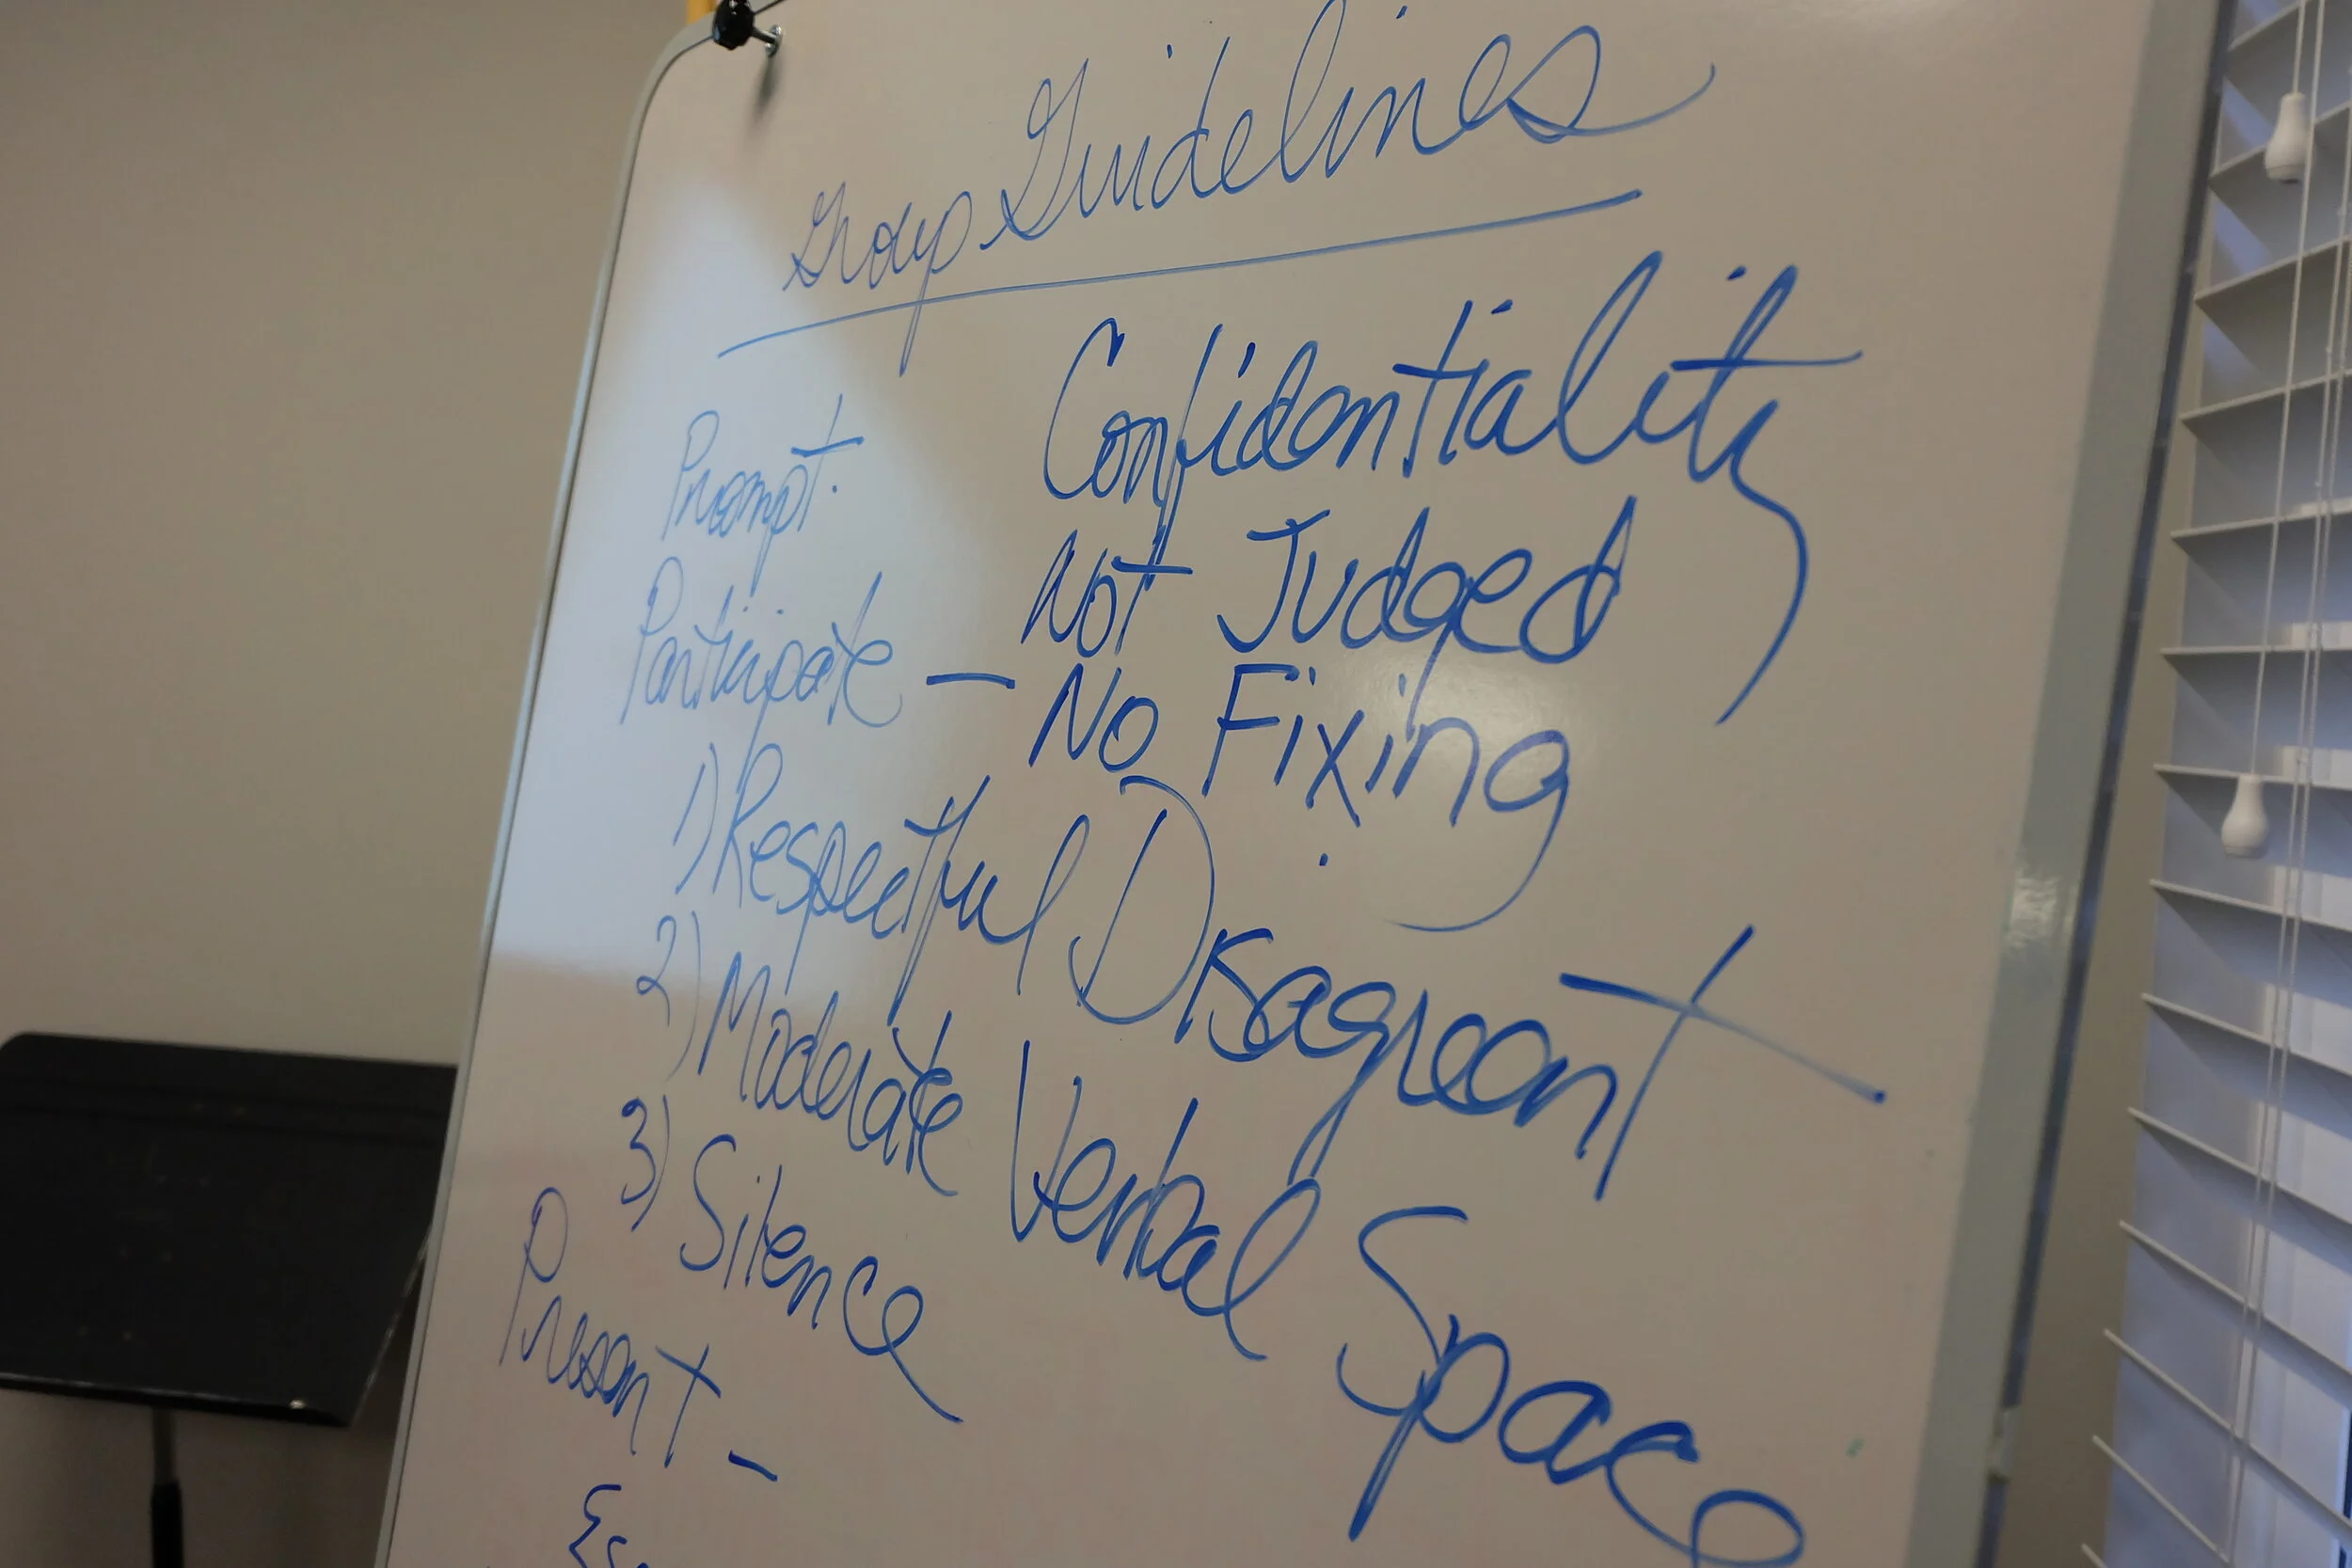 Group Guidelines
Prompt. Confidentiality
Not Judged
Participate — No Fixing
1) Respectful Disagreent
2) Moderate Verbal Space
3) Silence
Present –